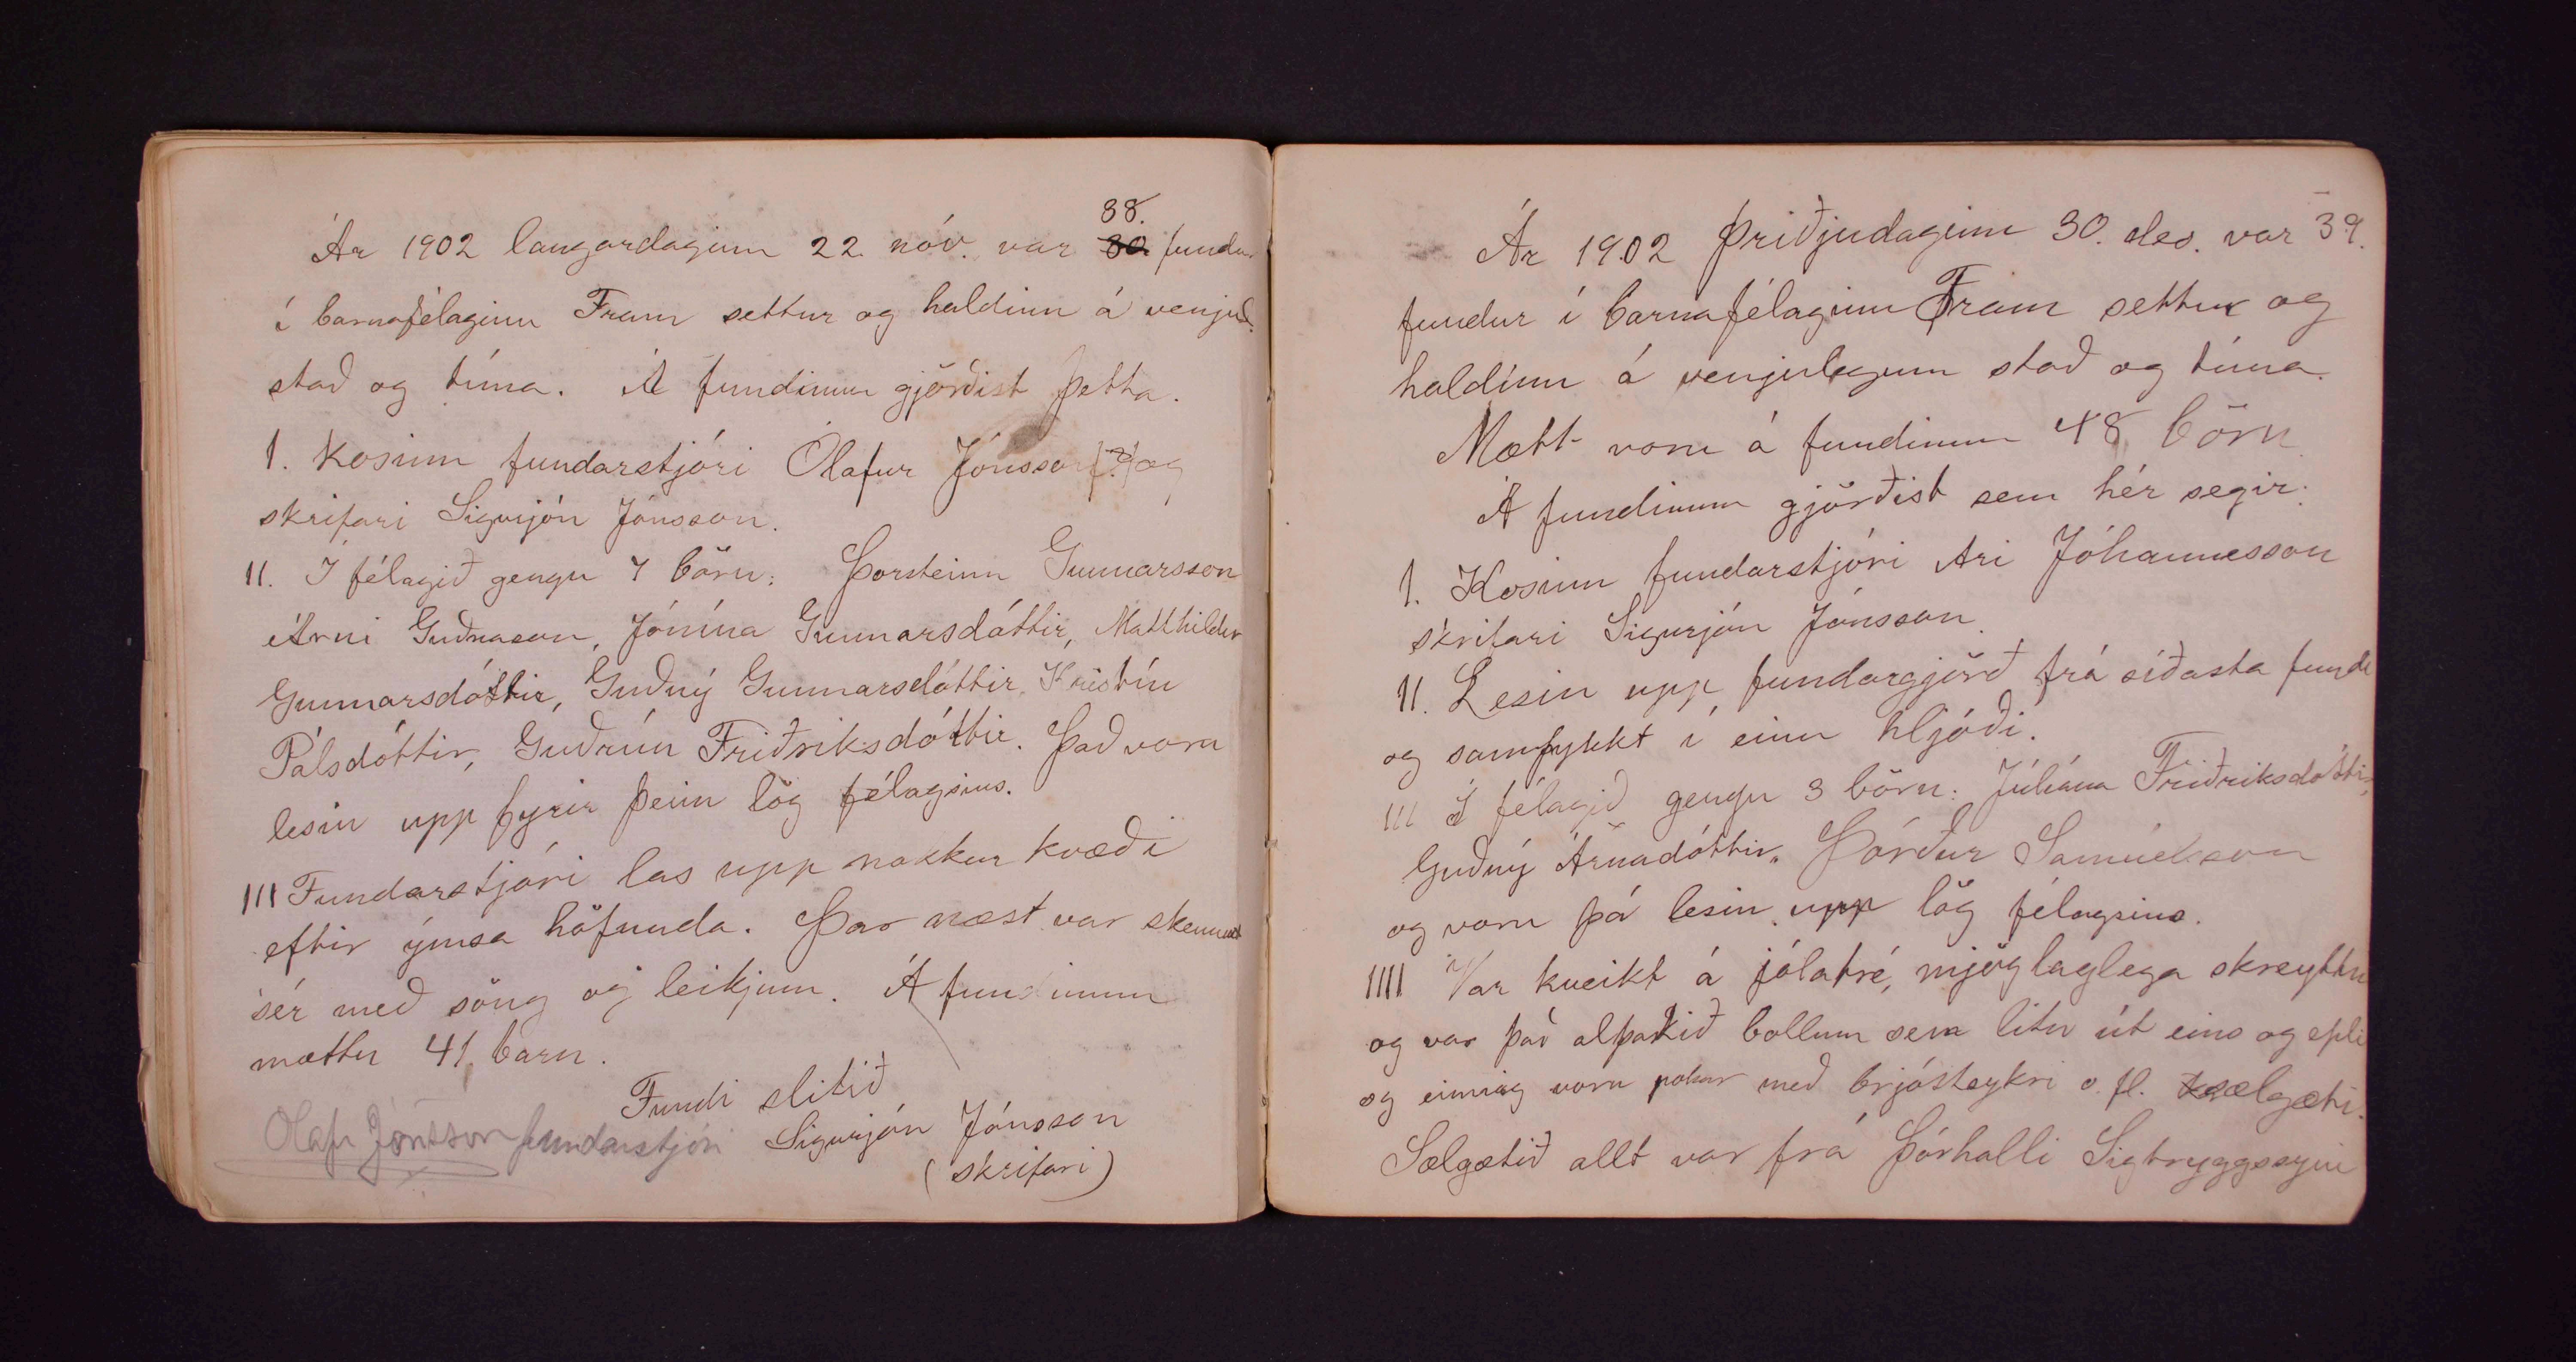 38.
Ár 1902 laugardaginn 22. nóv. var 30 fundur
í barnafélaginu Fram settur og haldinn á venjul.
stað og tíma. Á fundinum gjörðist þetta.
1. Kosinn fundarstjóri Ólafur Jónsson og
skrifari Sigurjón Jónsson.
11. Í félagið gengu 7 börn: Þorsteinn Gunnarsson
Árni Guðnason, Jónína Gunnarsdóttir, Matthildur
Gunnarsdóttir, Guðný Gunnarsdóttir, Kristín
Pálsdóttir, Guðrún Friðriksdóttir. Það voru
lesin upp fyrir þeim lög félagsins.
111 Fundarstjóri las upp nokkur kvæði
eftir ýmsa höfunda. Þar næst var skemmt
sér með söng og leikjum. Á fundinum
mættu 41 barn.
Fundi slitið
Olafr Jónsson fundarstjóri Sigurjón Jónsson
(skrifari)
Ár 1902 Þriðjudaginn 30. des. var 39.
fundur í barnafélaginu Fram settur og
haldinn á venjulegum stað og tíma.
Mætt voru á fundinum 48 börn
Á fundinum gjörðist sem hér segir:
1. Kosinn fundarstjóri Ari Jóhannesson
skrifari Sigurjón Jónsson.
11. Lesin upp fundargjörð frá síðasta fundi
og samþykkt í einu hljóði.
111 Í félagið gengu 3 börn: Júlíana Friðriksdóttir,
Guðný Árnadóttir, Þórður Samúelsson
og voru þá lesin upp lög félagsins.
1111 Var kveikt á jólatré, mjög laglega skreyttu
og var það alþakið bollum sem litu út eins og epli
og einnig voru pokar með brjóstsykri o. fl. sælgæti.
Sælgætið allt var frá Þórhalli Sigtryggssyni